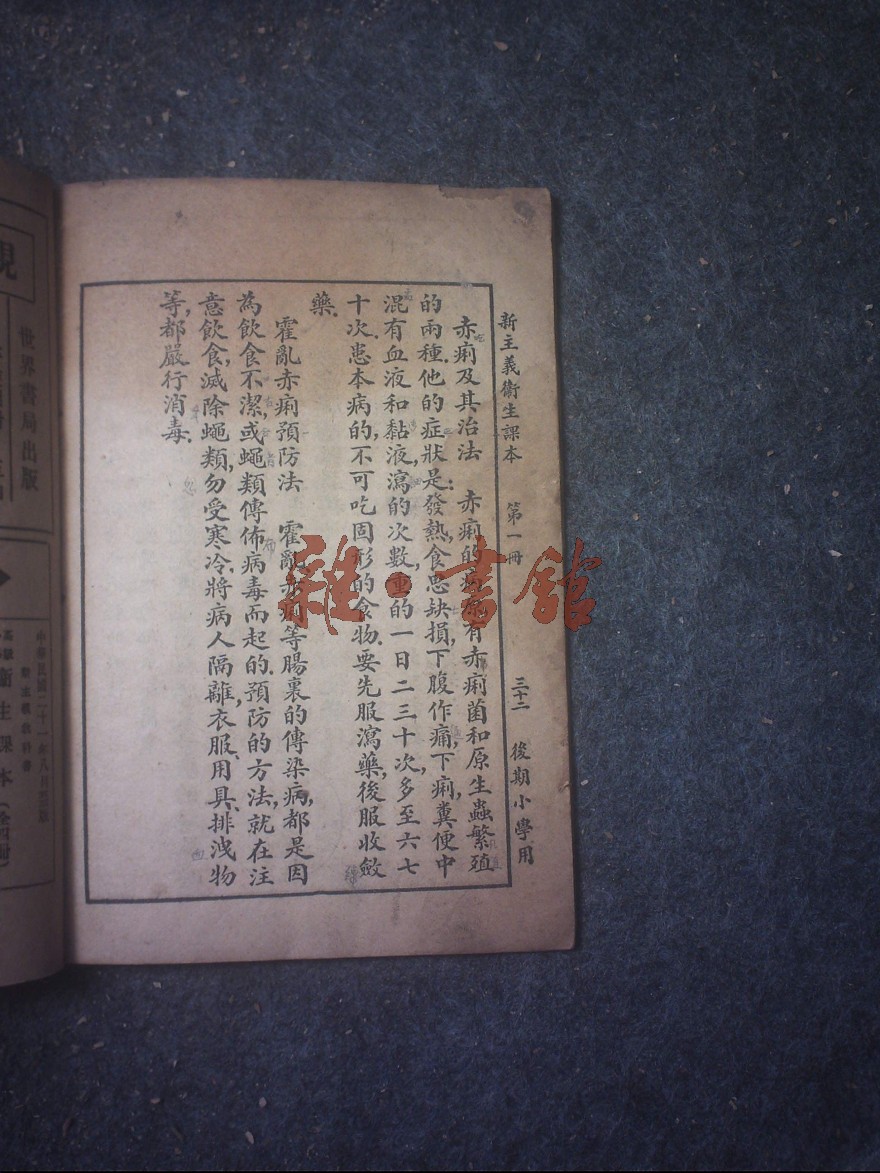 新主義衞生課本 第一冊 三十二 後期小學用
赤痢及其治法 赤痢的病原有赤痢菌和原生蟲繁殖
的兩種他的症狀是發熱食思缺損下腹作痛下痢糞便中
混有血液和黏液瀉的次數重的一日二三十次多至六七
十次患本病的不可吃固形的食物要先服瀉藥後服收斂
藥
霍亂赤痢預防法 霍亂赤痢等腸裏的傳染病都是因
為飲食不潔或蠅類傳佈病毒而起的預防的方法就在注
意飲食滅除蠅類勿受寒冷將病人隔離衣服用具排洩物
等都嚴行消毒
雜·書館
觀
世界書局出版
中華民國二十一年八月
衞生課本